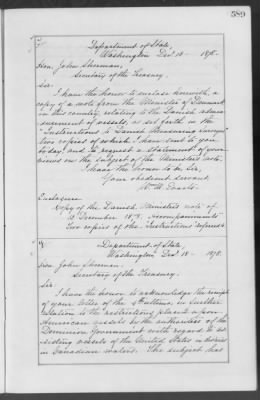 589
Department of State,
Washington Dec 18 - 1878.
Hon. John Sherman,
Secretary of the Treasury.
Sir:
I have the honor to enclose herewith, a
copy of a note from the Minister of Denmark
in this country, relating to the Danish admea-
surement of vessels, as set forth in the
"Instructions to Danish Measuring Surveyors"
two copies of which I have sent to you
to-day, and to request a statement of your
views on the subject of the Minister's note.
I have the honor to be, Sir,
Your obedient servant
Wm. M. Evarts.
Enclosure
Copy of the Danish Minister's note of
December 1878, accompaniments
Two copies of the "Instructions" referred
Department of State,
Washington, Dec. 18 - 1878.
Hon. John Sherman,
Secretary of the Treasury.
Sir:
I have the honor to acknowledge the receipt
of your letter of the 9th ultimo, in further
relation to the restrictions placed upon
American vessels by the authorities of the
Dominion Government with regard to as-
sisting vessels of the United States in distress
in Canadian waters. The subject has